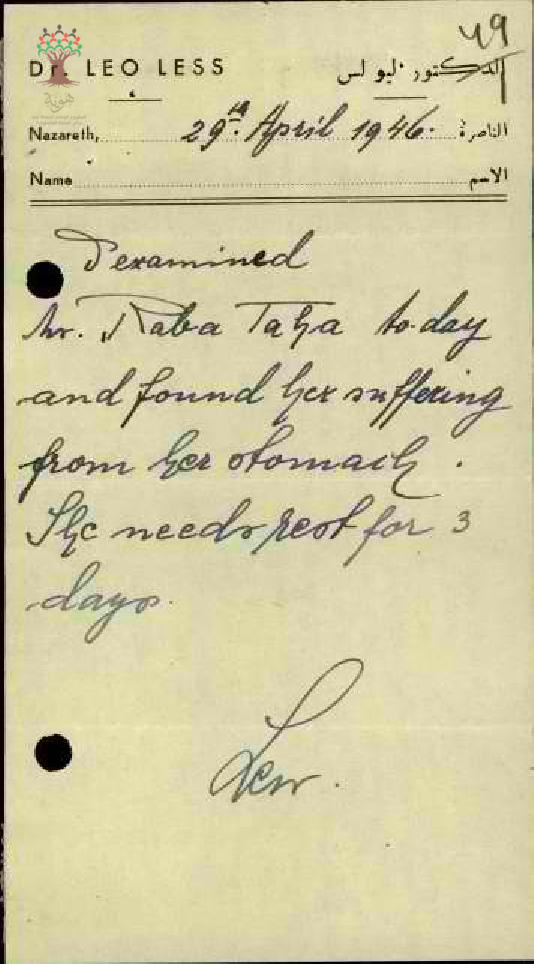 49
DR LEO LESS الدكتور ليو لس
Nazareth, 29th April 1946. الناصرة
Name الاسم
I examined
Mr. Raba Taha to-day
and found her suffering
from her stomach.
She needs rest for 3
days.
Less.